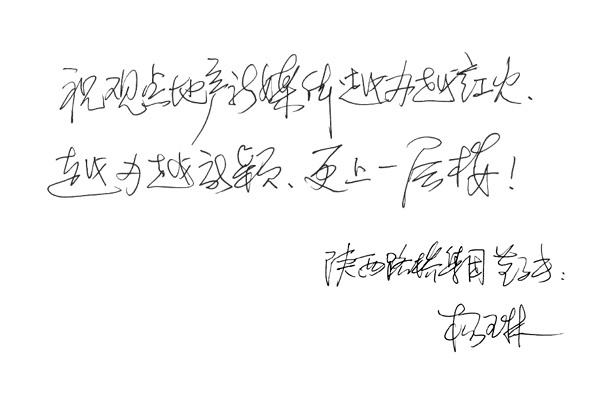 祝观点地产新媒体越办越红火、
越办越新颖、更上一层楼!
陕西路桥集团董事长:
杨琳